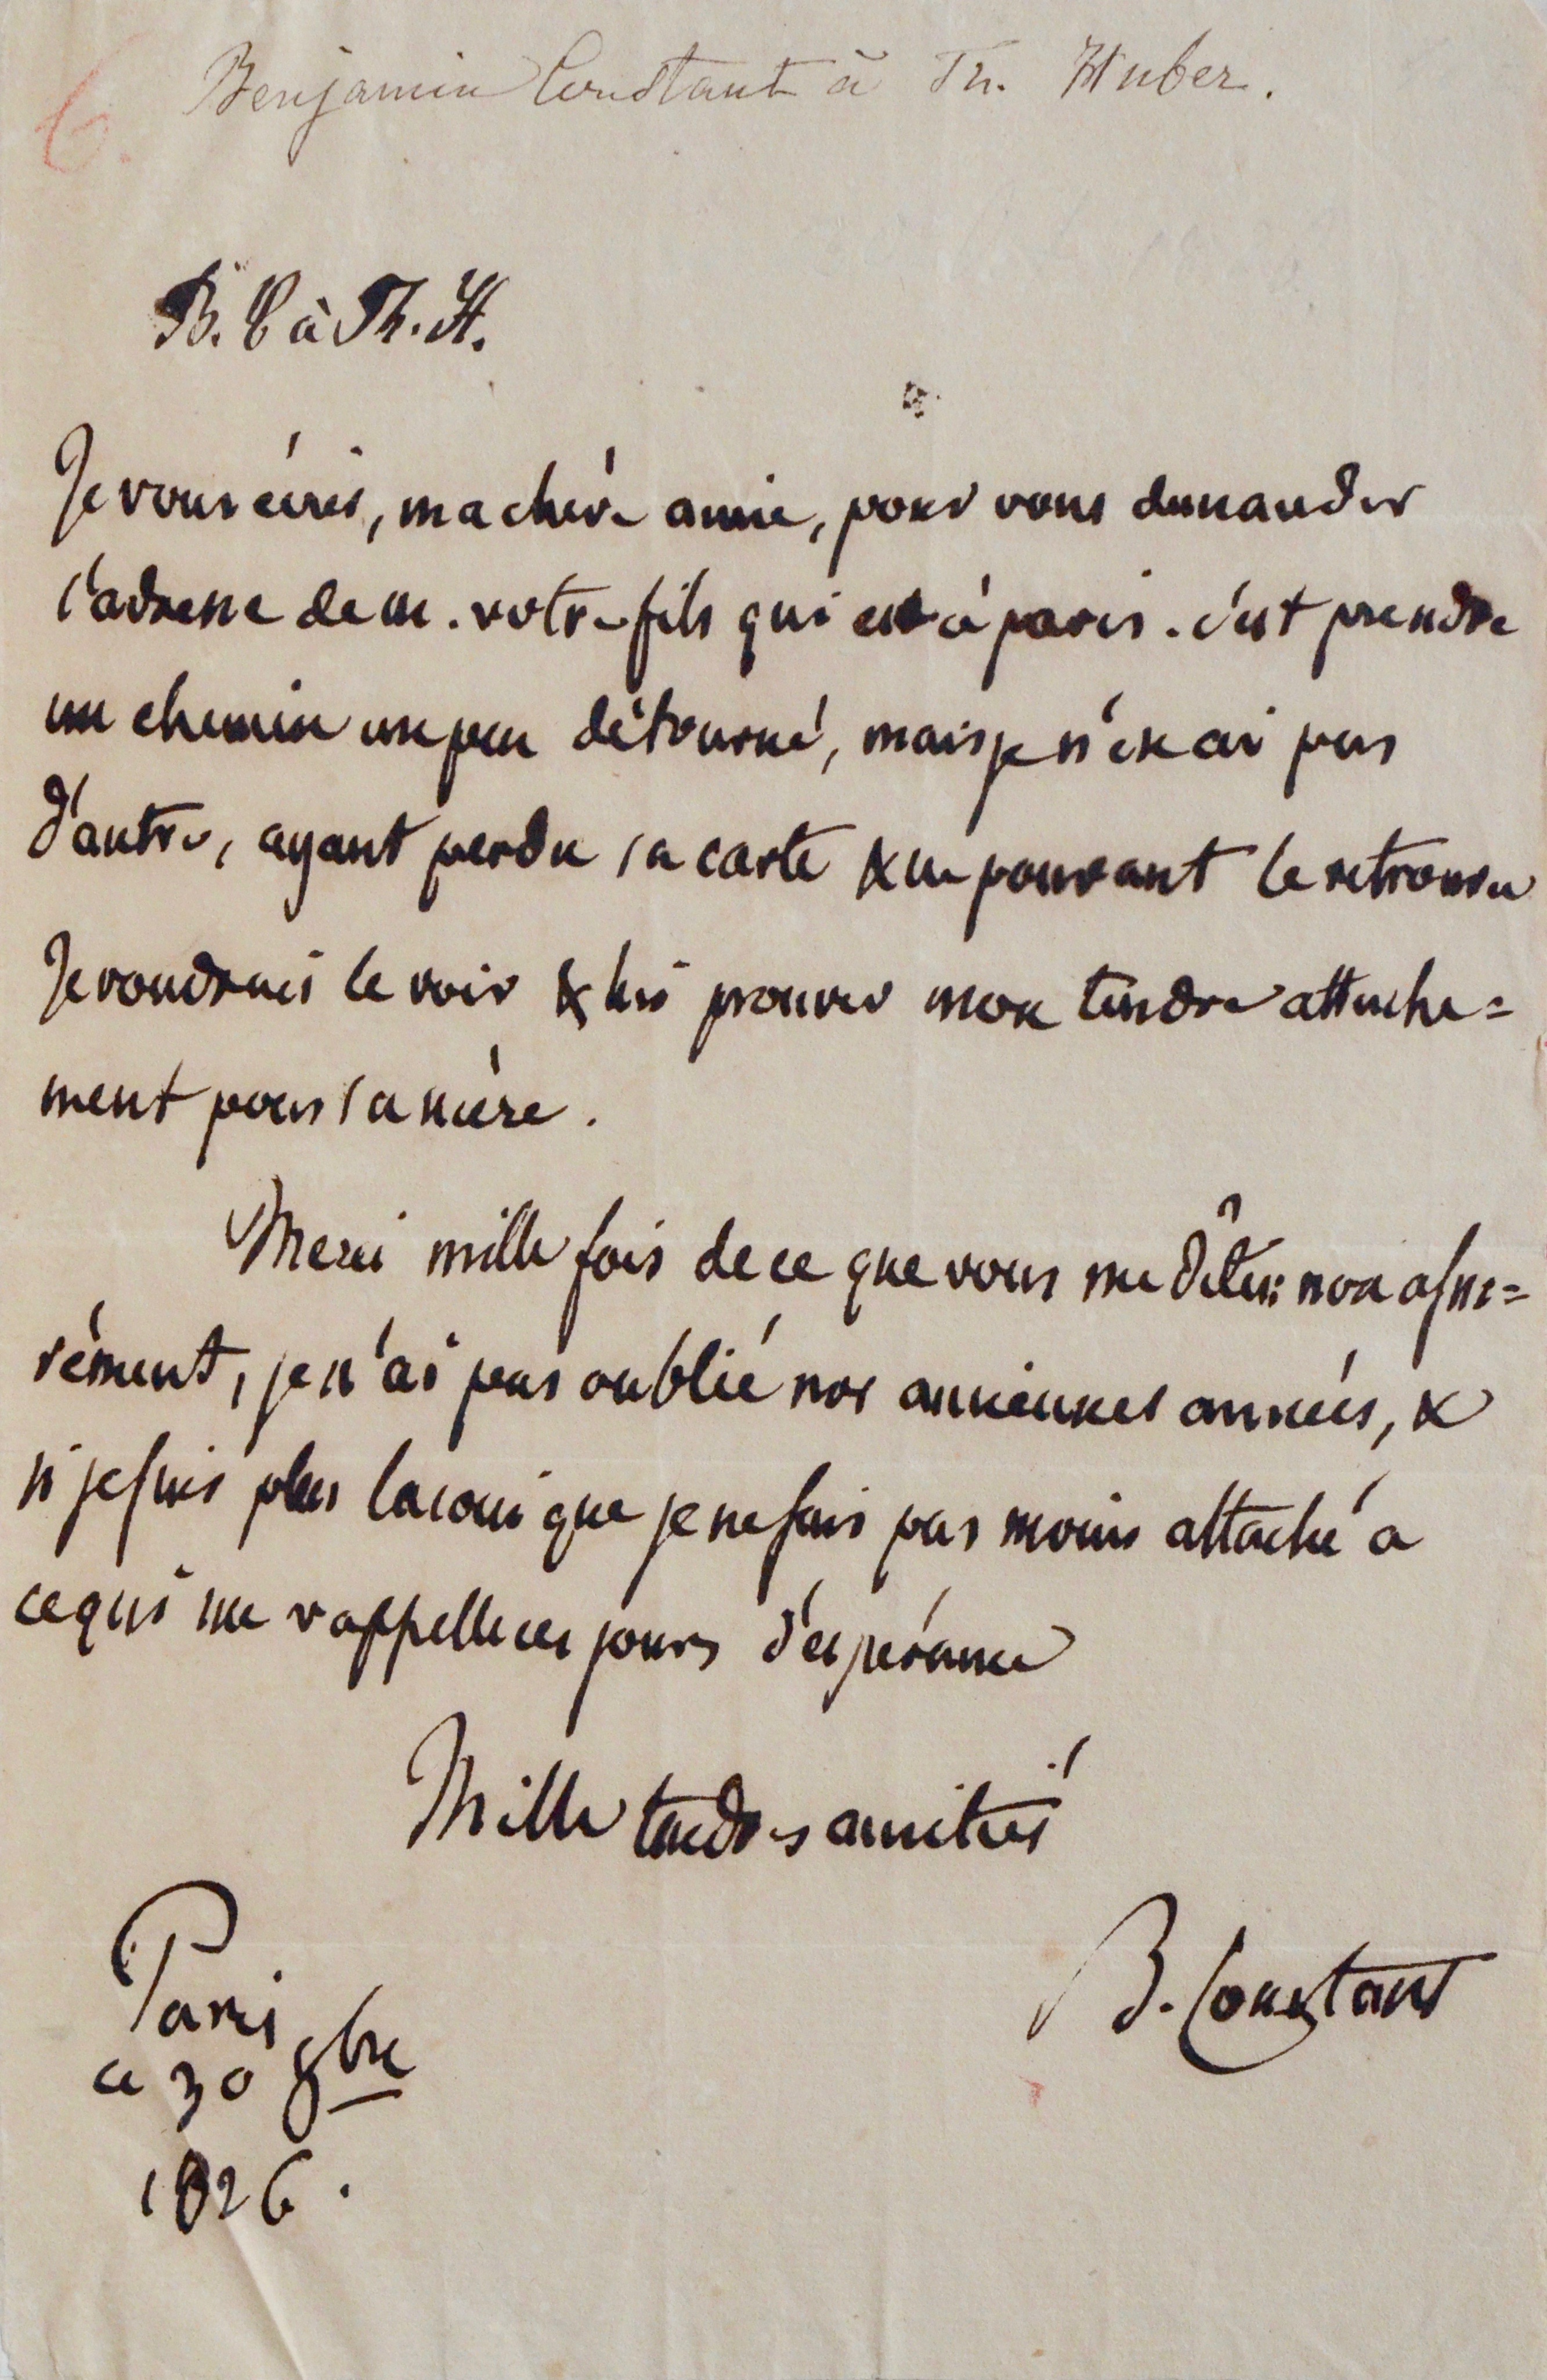 Benjamin Constant à Th. Huber.
6.
B. C à Th. H.
Je vous écris, ma chère amie, pour vous demander
l'adresse de m. votre fils qui est à paris. c'est prendre
un chemin un peu détourné, mais je n'en ai pas
d'autre, ayant perdu sa carte & ne pouvant le retrouver
Je voudrais le voir & lui prouver mon tendre attache=
ment pour sa mère.
Merci mille fois de ce que vous me dites: non assu=
rément, je n'ai pas oublié nos anciennes années, &
si je suis plus laconique je ne suis pas moins attaché a
ce qui me rappelle ces jours d'espérance
Mille tendres amitiés
B. Constant
Paris
ce 30 8bre
1826.